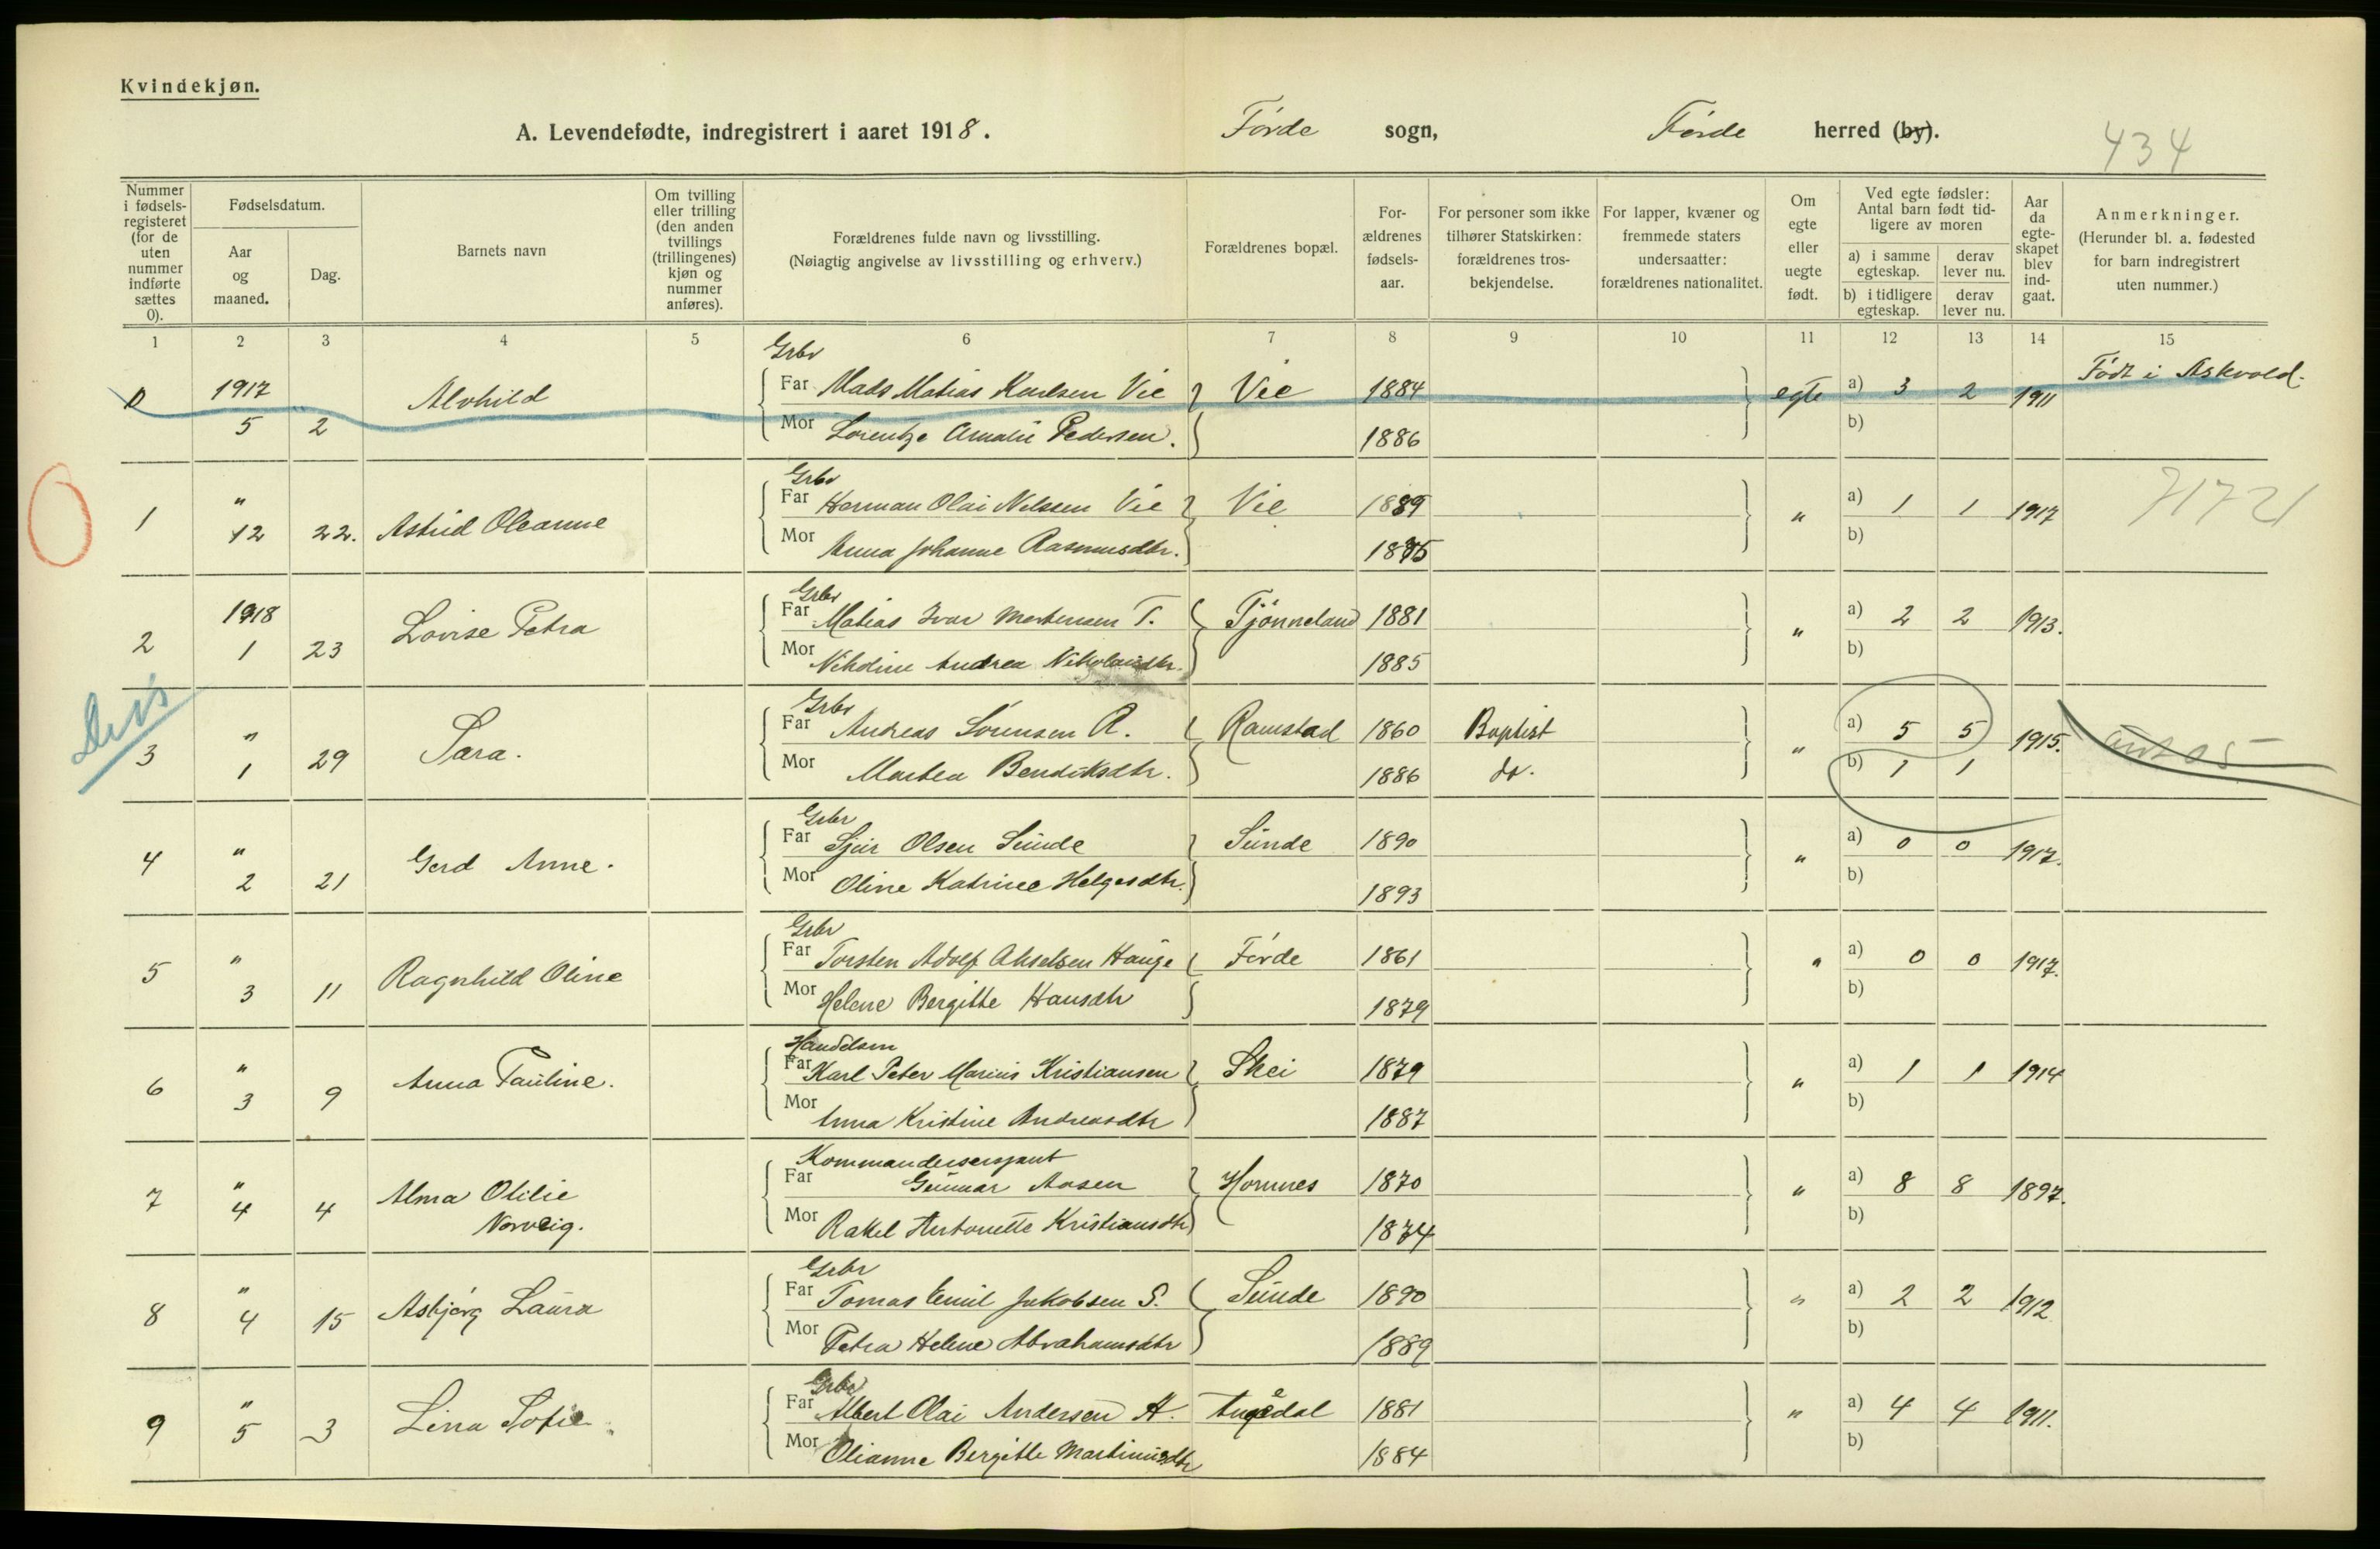 Kvindekjøn.
A. Levendefødte, indregistrert i aaret 1918. Førde sogn, Førde herred (by).
434
Nummer i fødsels-registeret (for de uten nummer indførte sættes 0).
Fødselsdatum.
Aar og maaned.
Dag.
Barnets navn
Om tvilling eller trilling (den anden tvillings (trillingenes) kjøn og nummer anføres).
Forældrenes fulde navn og livsstilling.
(Nøiagtig angivelse av livsstilling og erhverv.)
Forældrenes bopæl.
For-ældrenes fødsels-aar.
For personer som ikke tilhører Statskirken: forældrenes tros-bekjendelse.
For lapper, kvæner og fremmede staters undersaatter: forældrenes nationalitet.
Om egte eller uegte født.
Ved egte fødsler: Antal barn født tid-ligere av moren
a) i samme egteskap. derav lever nu.
b) i tidligere egteskap. derav lever nu.
Aar da egte-skapet blev ind-gaat.
Anmerkninger.
(Herunder bl. a. fødested for barn indregistrert uten nummer.)
1 2 3 4 5 6 7 8 9 10 11 12 13 14 15
Grbr
0 1917 Alvhild Far Mads Matias Karlsen Vie Vie 1884 egte a) 3 2 1911 Født i Askvold.
5 2 Mor Lorentze Amalie Pedersen. 1886 b)
Grbr
1 " Astrid Oleanne Far Herman Olai Nilssen Vie Vie 1889 " a) 1 1 1917 71721
12 22. Mor Anna Johanne Rasmusdtr. 1885 b)
Grbr
2 1918 Lovise Petra Far Matias Ivar Mortensen T. Tjønneland 1881 " a) 2 2 1913.
1 23 Mor Nikoline Andrea Nikolaidtr. 1885 b)
Grbr
3 " Sara. Far Andreas Sørensen R. Ramstad 1860 Baptist " a) 5 5 1915.
1 29 Mor Martea Bendiksdtr. 1886 do. b) 1 1
Grbr
4 " Gerd Anne. Far Sjur Olsen Sunde Sunde 1890 " a) 0 0 1917.
2 21 Mor Oline Katrine Helgesdtr. 1893 b)
Grbr
5 " Ragnhild Oline Far Torsten Adolf Akselsen Hauge Førde 1861 " a) 0 0 1917.
3 11 Mor Helene Bergitte Hansdtr 1879 b)
Handelsm
6 " Anna Pauline. Far Karl Peter Marius Kristiansen Skei 1879 " a) 1 1 1914
3 9 Mor Anna Kristine Andreasdtr 1887 b)
Kommandersersjant
7 " Alma Otilie Far Gunnar Aasen Hornnes 1870 " a) 8 8 1897.
4 4 Norveig. Mor Rakel Antonette Kristiansdtr 1874 b)
Grbr
8 " Asbjørg Laura Far Tomas Emil Jakobsen S. Sunde 1890 " a) 2 2 1912
4 15 Mor Petra Helene Abrahamsdtr 1889 b)
Grbr
9 " Lina Sofie Far Albert Olai Andersen A. Angedal 1881 " a) 4 4 1911.
5 3 Mor Olianne Bergitte Martinusdtr 1884 b)